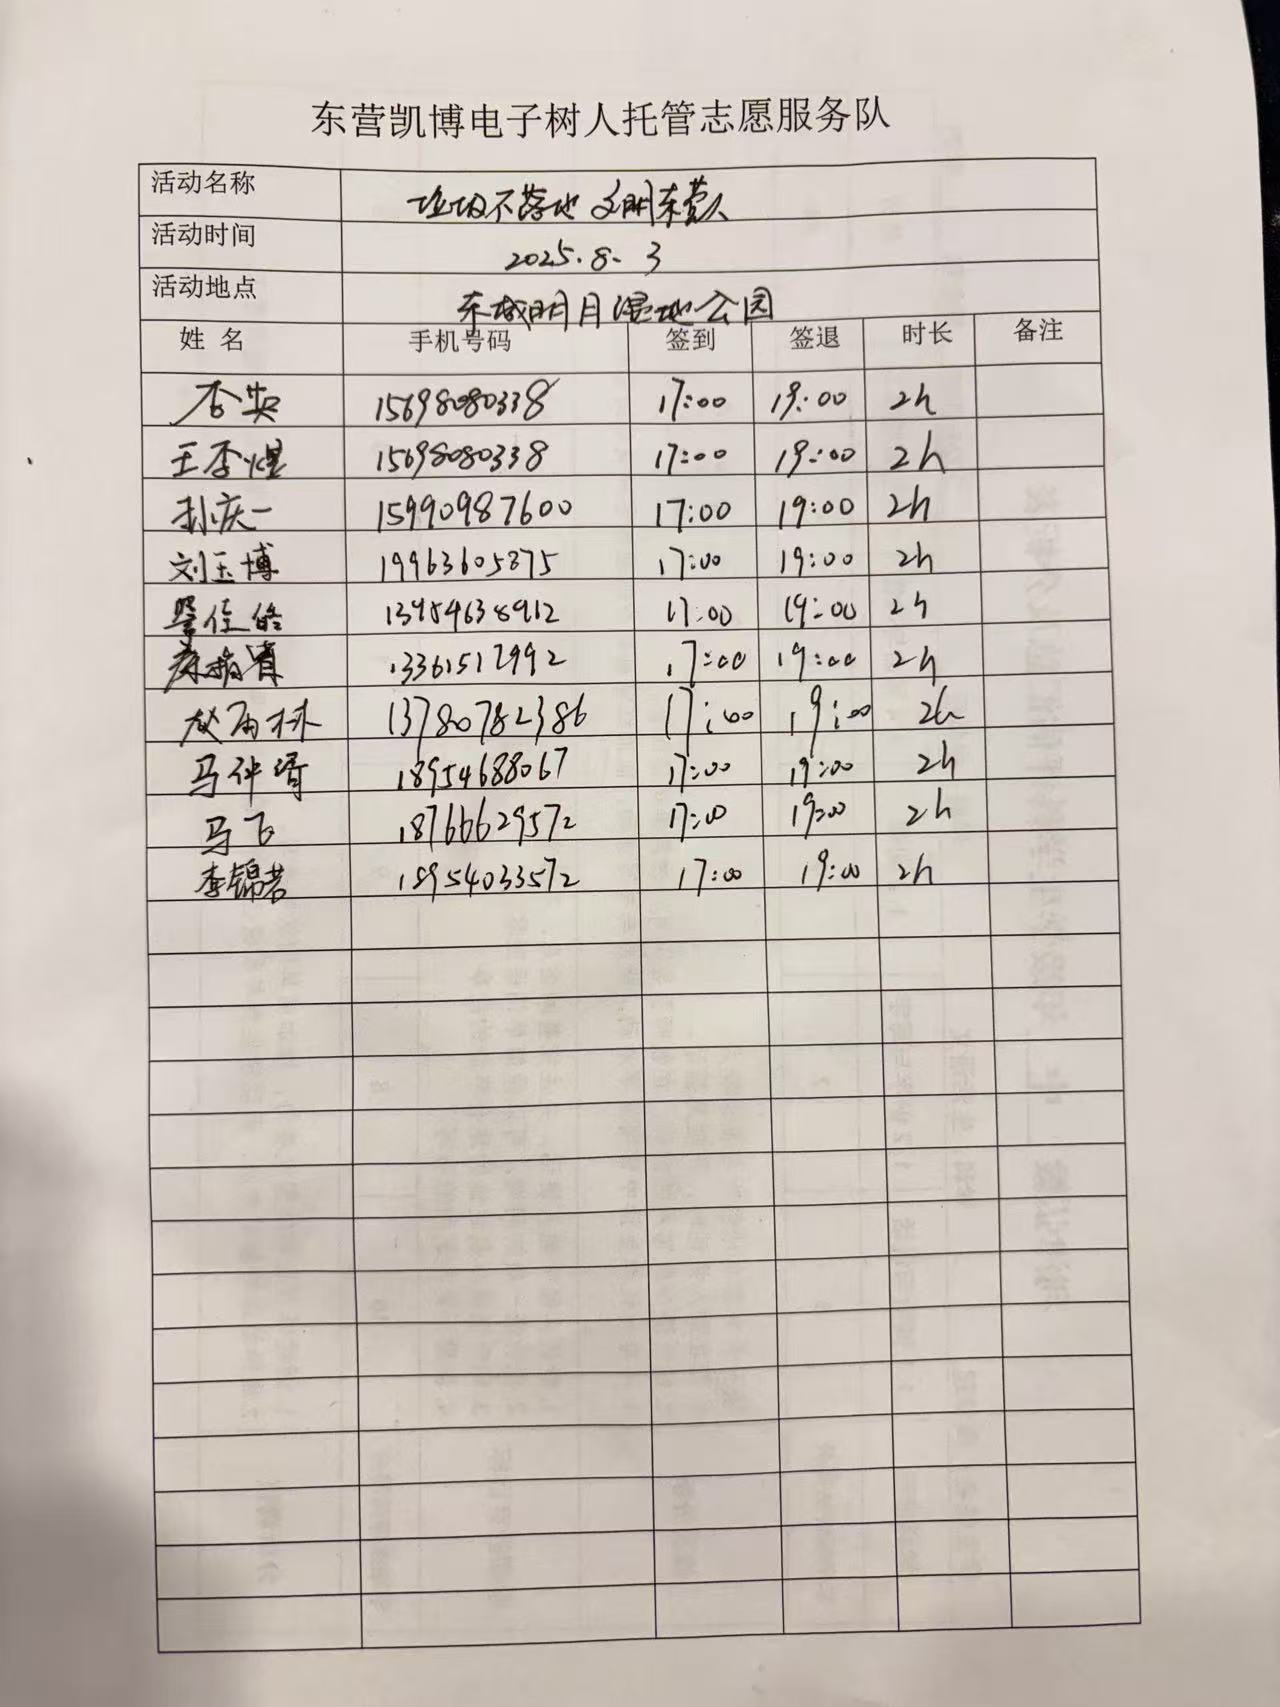 东营凯博电子树人托管志愿服务队
活动名称 垃圾不落地 文明东营人
活动时间 2025.8.3
活动地点 东城明月湿地公园
姓 名 手机号码 签到 签退 时长 备注
15698080338 17:00 19:00 2h
王李煜 15698080338 17:00 19:00 2h
孙庆一 15990987600 17:00 19:00 2h
刘玉博 19963605875 17:00 19:00 2h
13954638912 17:00 19:00 2h
13361517992 17:00 19:00 2h
赵雨林 13780782386 17:00 19:00 2h
马仲壻 18954688067 17:00 19:00 2h
马飞 18766629572 17:00 19:00 2h
李锦若 18954033572 17:00 19:00 2h